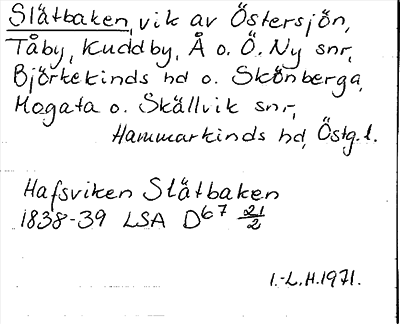 Slätbaken, vik av Östersjön,
Tåby, Kuddby, Å o. Ö. Ny snr,
Björkekinds hd o. Skönberga,
Mogata o. Skällvik snr,
Hammarkinds hd, Östg.l.
Hafsviken Slätbaken
1838-39 LSA D67 21/2
I.-L.H.1971.